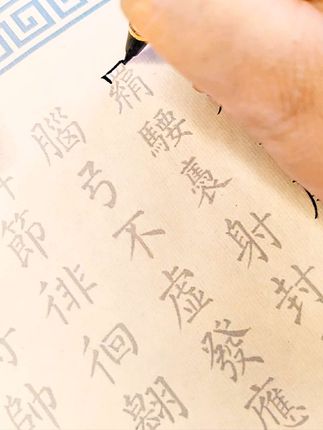 羂騕褭射封
腦弓不虛發應
節徘徊翱
帥